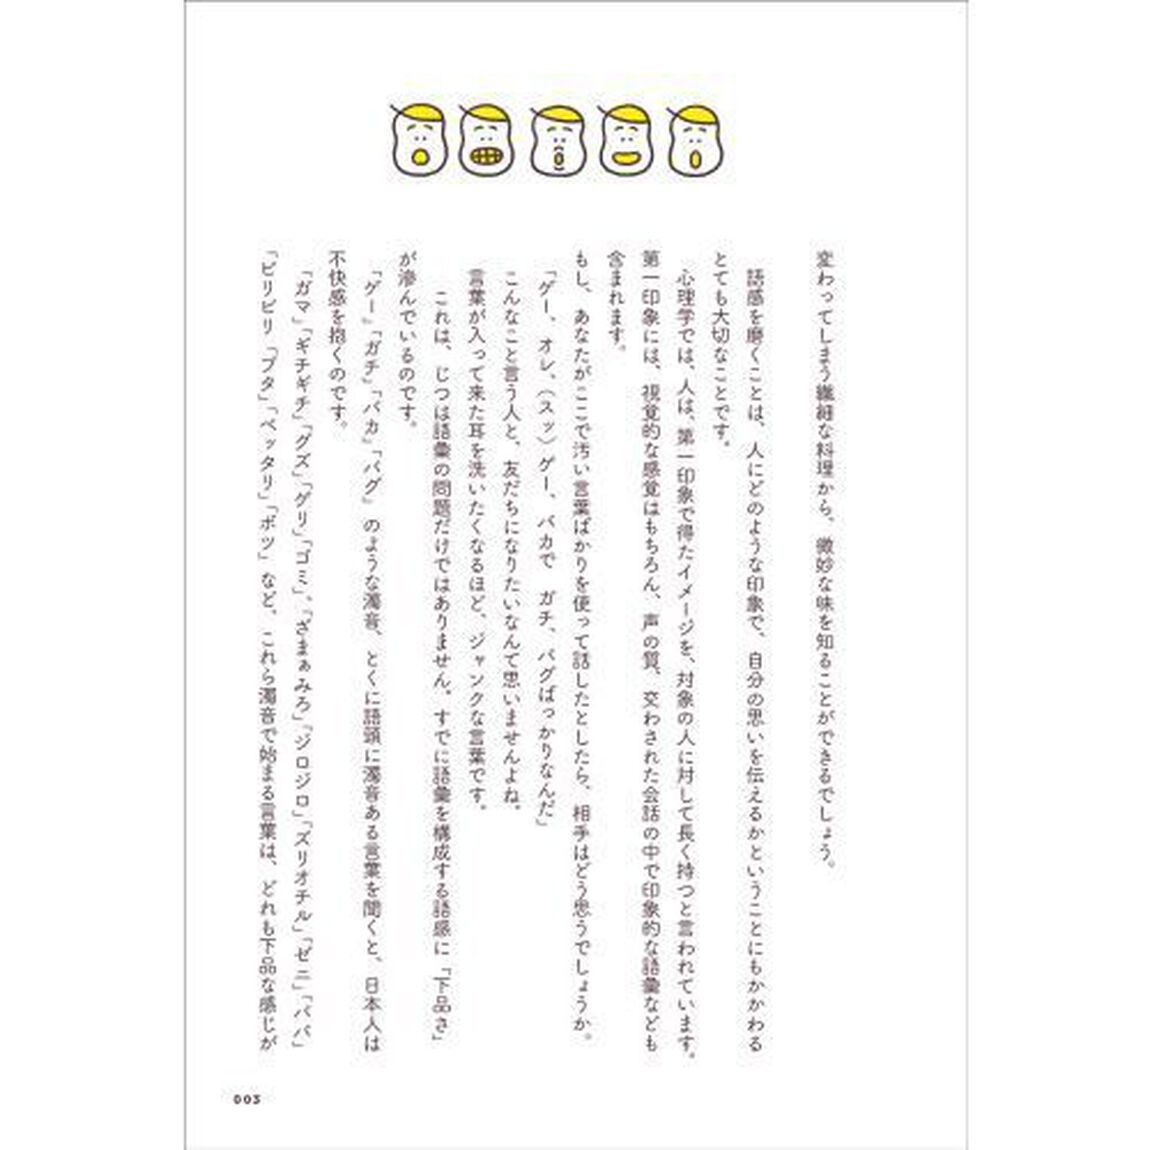 変わってしまう繊細な料理から、微妙な味を知ることができるでしょう。
語感を磨くことは、人にどのような印象で、自分の思いを伝えるかということにもかかわる
とても大切なことです。
心理学では、人は、第一印象で得たイメージを、対象の人に対して長く持つと言われています。
第一印象には、視覚的な感覚はもちろん、声の質、交わされた会話の中で印象的な語彙なども
含まれます。
もし、あなたがここで汚い言葉ばかりを使って話したとしたら、相手はどう思うでしょうか。
「ゲー、オレ、(スッ)ゲー、バカで ガチ、バグばっかりなんだ」
こんなこと言う人と、友だちになりたいなんて思いませんよね。
言葉が入って来た耳を洗いたくなるほど、ジャンクな言葉です。
これは、じつは語彙の問題だけではありません。すでに語彙を構成する語感に「下品さ」
が滲んでいるのです。
「ゲー」「ガチ」「バカ」「バグ」のような濁音、とくに語頭に濁音ある言葉を聞くと、日本人は
不快感を抱くのです。
「ガマ」「ギチギチ」「グズ」「ゲリ」「ゴミ」。「ざまぁみろ」「ジロジロ」「ズリオチル」「ゼニ」「ババ」
「ビリビリ「ブタ」「ベッタリ」「ボツ」など、これら濁音で始まる言葉は、どれも下品な感じが
003